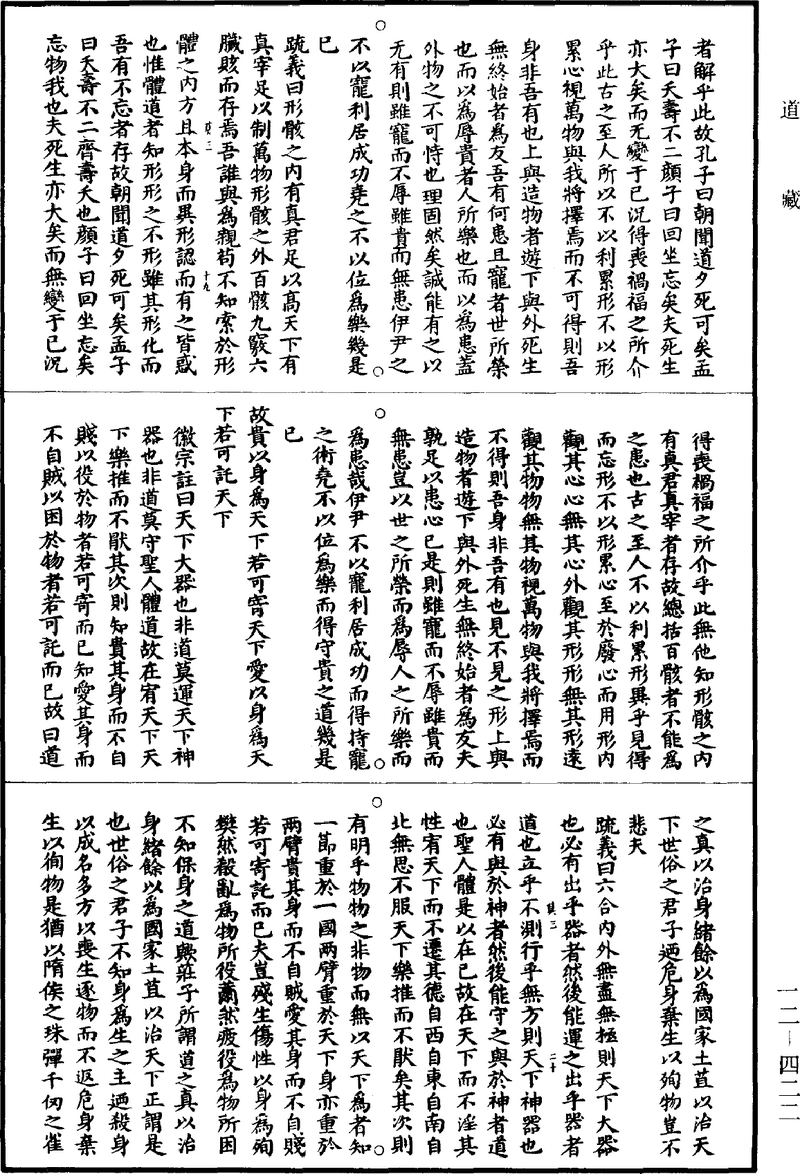 道藏
者解乎此故孔子曰朝聞道夕死可矣孟
子曰夭壽不二顔子曰回坐忘矣夫死生
亦大矣而无變于已況得喪禍福之所介
乎此古之至人所以不以利累形不以形
累心視萬物與我將擇焉而不可得則吾
身非吾有也上與造物者遊下與外死生
無終始者為友吾有何患且寵者世所榮
也而以為辱貴者人所樂也而以為患蓋
外物之不可恃也理固然矣誠能有之以
无有則雖寵而不辱雖貴而無患伊尹之
不以寵利居成功堯之不以位為樂幾是
已
疏義曰形骸之內有真君足以高天下有
真宰足以制萬物形骸之外百骸九竅六
臟賅而存焉吾誰與為親苟不知索於形
體之內方且本身而異形認而有之皆惑
也惟體道者知形形之不形雖其形化而
吾有不忘者存故朝聞道夕死可矣孟子
曰夭壽不二齊壽夭也顔子曰回坐忘矣
忘物我也夫死生亦大矣而無變于已況
得喪禍福之所介乎此無他知形骸之內
有真君真宰者存故總括百骸者不能為
之患也古之至人不以利累形異乎見得
而忘形不以形累心至於廢心而用形內
觀其心心無其心外觀其形形無其形遠
觀其物物無其物視萬物與我將擇焉而
不得則吾身非吾有也見不見之形上與
造物者遊下與外死生無終始者為友夫
孰足以患心已是則雖寵而不辱雖貴而
無患豈以世之所榮而為辱人之所樂而
為患哉伊尹不以寵利居成功而得持寵
之術堯不以位為樂而得守貴之道幾是
已
故貴以身為天下若可寄天下愛以身為天
下若可託天下
徽宗註曰天下大器也非道莫運天下神
器也非道莫守聖人體道故在宥天下天
下樂推而不猒其次則知貴其身而不自
賤以役於物者若可寄而已知愛其身而
不自賊以困於物者若可託而已故曰道
之真以治身緒餘以為國家土苴以治天
下世俗之君子迺危身棄生以殉物豈不
悲夫
疏義曰六合內外無盡無極則天下大器
也必有出乎器者然後能運之出乎器者
道也立乎不測行乎無方則天下神器也
必有與於神者然後能守之與於神者道
也聖人體是以在已故在天下而不淫其
性宥天下而不遷其德自西自東自南自
北無思不服天下樂推而不猒矣其次則
有明乎物物之非物而無以天下為者知
一節重於一國兩臂重於天下身亦重於
兩臂貴其身而不自賊愛其身而不自賤
若可寄託而已夫豈殘生傷性以身為殉
樊然殽亂為物所役薾然疲役為物所困
不知保身之道歟莊子所謂道之真以治
身緒餘以為國家土苴以治天下正謂是
也世俗之君子不知身為生之主迺殺身
以成名多方以喪生逐物而不返危身棄
生以徇物是猶以隋侯之珠彈千仞之雀
其三
十九
其三
二十
一二—四二二